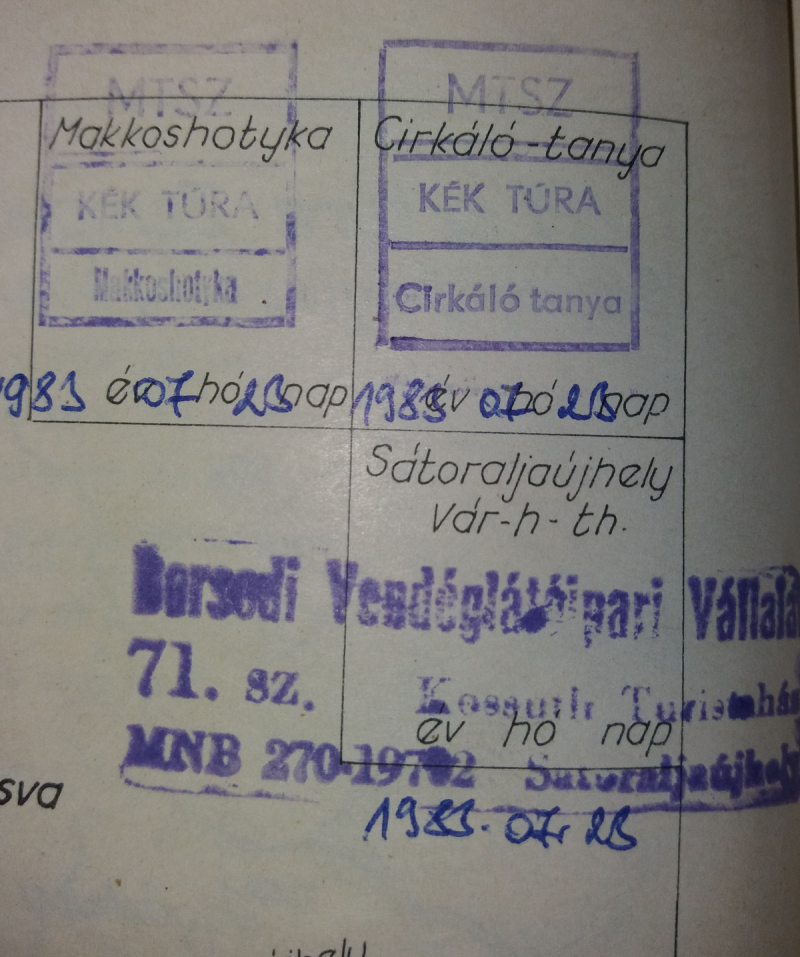 MTSZ
Makkoshotyka
KÉK TÚRA
Makkoshotyka
1983 év 07 hó 23 nap
MTSZ
Cirkáló-tanya
KÉK TÚRA
Cirkáló tanya
1983 év 07 hó 23 nap
Sátoraljaújhely
Vár-h-th.
Borsodi Vendéglátóipari Vállala
71. sz. Kossuth Turistahá
év hó nap
MNB 270-19702 Sátoraljaújhely
sva
1983. 07. 23